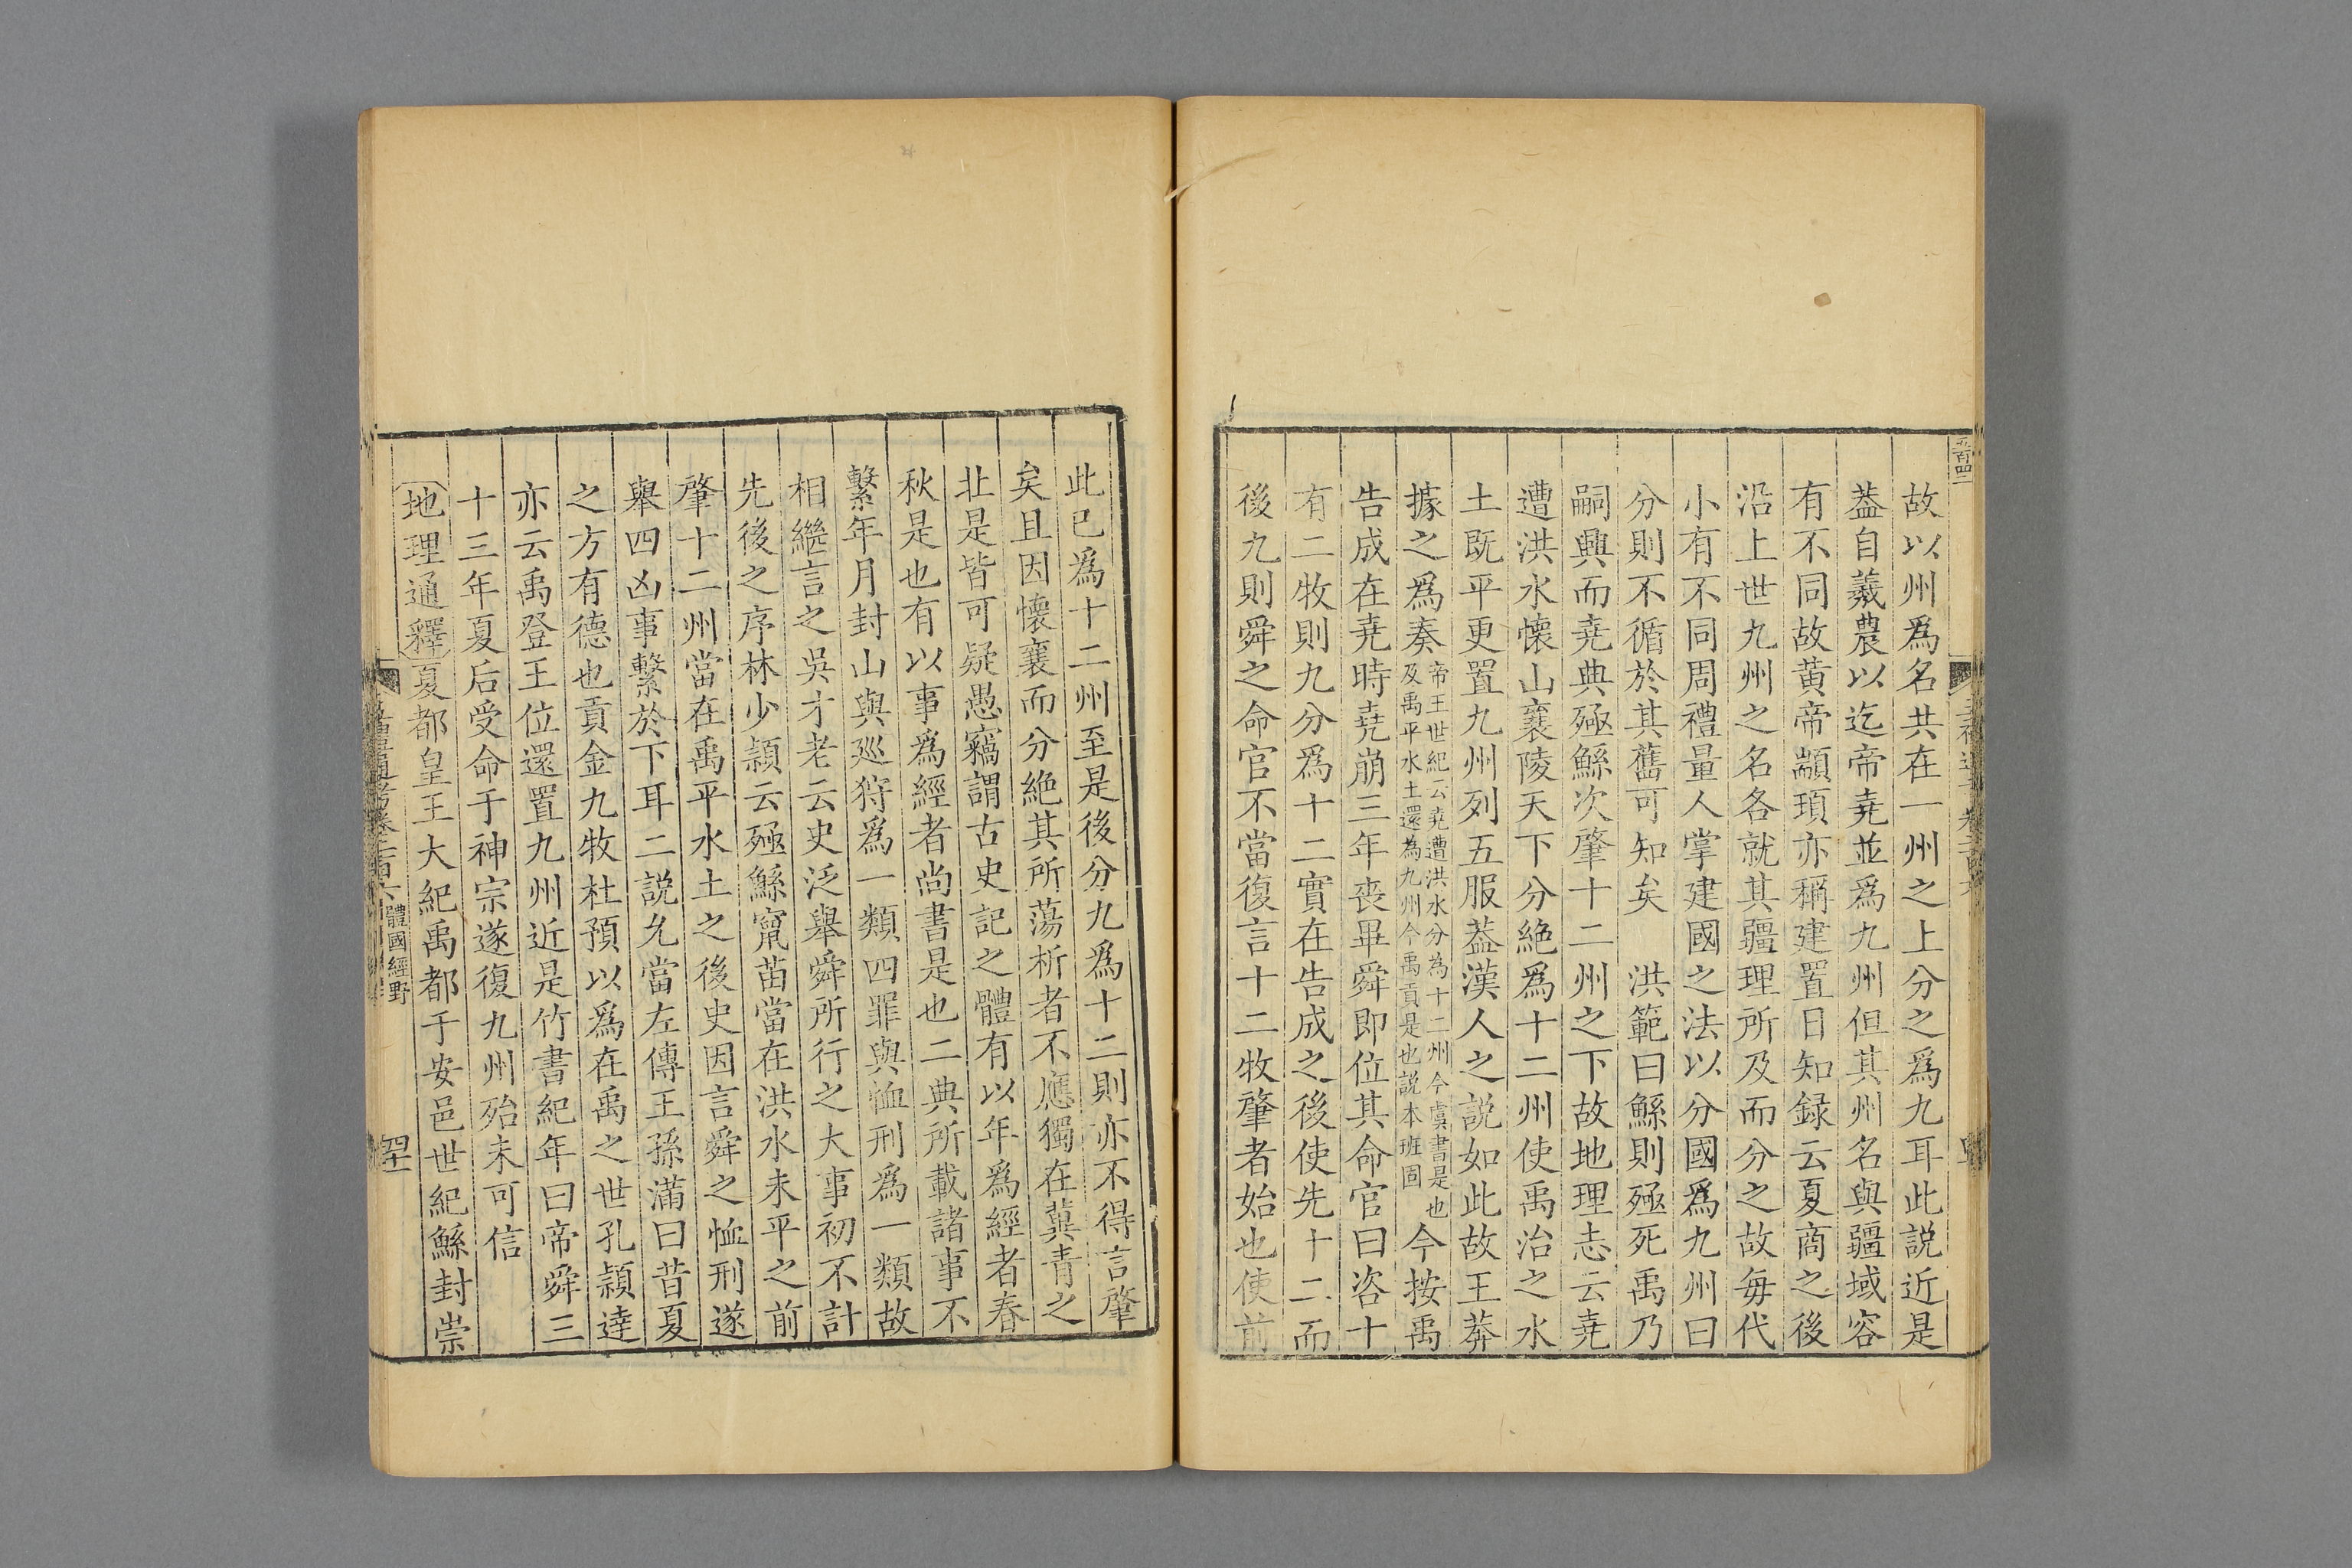 故以州爲名共在一州之上分之爲九耳此説近是
葢自羲農以迄帝堯並爲九州但其州名與疆域容
有不同故黄帝顓頊亦稱建置日知録云夏商之後
沿上世九州之名各就其疆理所及而分之故每代
小有不同周禮量人掌建國之法以分國爲九州曰
分則不循於其舊可知矣　洪範曰鯀則殛死禹乃
嗣興而堯典殛鯀次肇十二州之下故地理志云堯
遭洪水懷山襄陵天下分絶爲十二州使禹治之水
土既平更置九州列五服葢漢人之説如此故王莽
據之爲奏帝王世紀云堯遭洪水分為十二州今虞書是也及禹平水土還為九州今禹貢是也説本班固今按禹
告成在堯時堯崩三年喪畢舜即位其命官曰咨十
有二牧則九分爲十二實在告成之後使先十二而
後九則舜之命官不當復言十二牧肇者始也使前
此已爲十二州至是後分九爲十二則亦不得言肇
矣且因懷襄而分絶其所蕩析者不應獨在冀青之
北是皆可疑愚竊謂古史記之體有以年爲經者春
秋是也有以事爲經者尚書是也二典所載諸事不
繫年月封山與巡狩爲一類四罪與恤刑爲一類故
相繼言之吳才老云史泛舉舜所行之大事初不計
先後之序林少頴云殛鯀竄苗當在洪水未平之前
肇十二州當在禹平水土之後史因言舜之恤刑遂
舉四凶事繫於下耳二説允當左傳王孫滿曰昔夏
之方有德也貢金九牧杜預以爲在禹之世孔頴達
亦云禹登王位還置九州近是竹書紀年曰帝舜三
十三年夏后受命于神宗遂復九州殆未可信
地理通釋夏都皇王大紀禹都于安邑世紀鯀封崇
體國經野